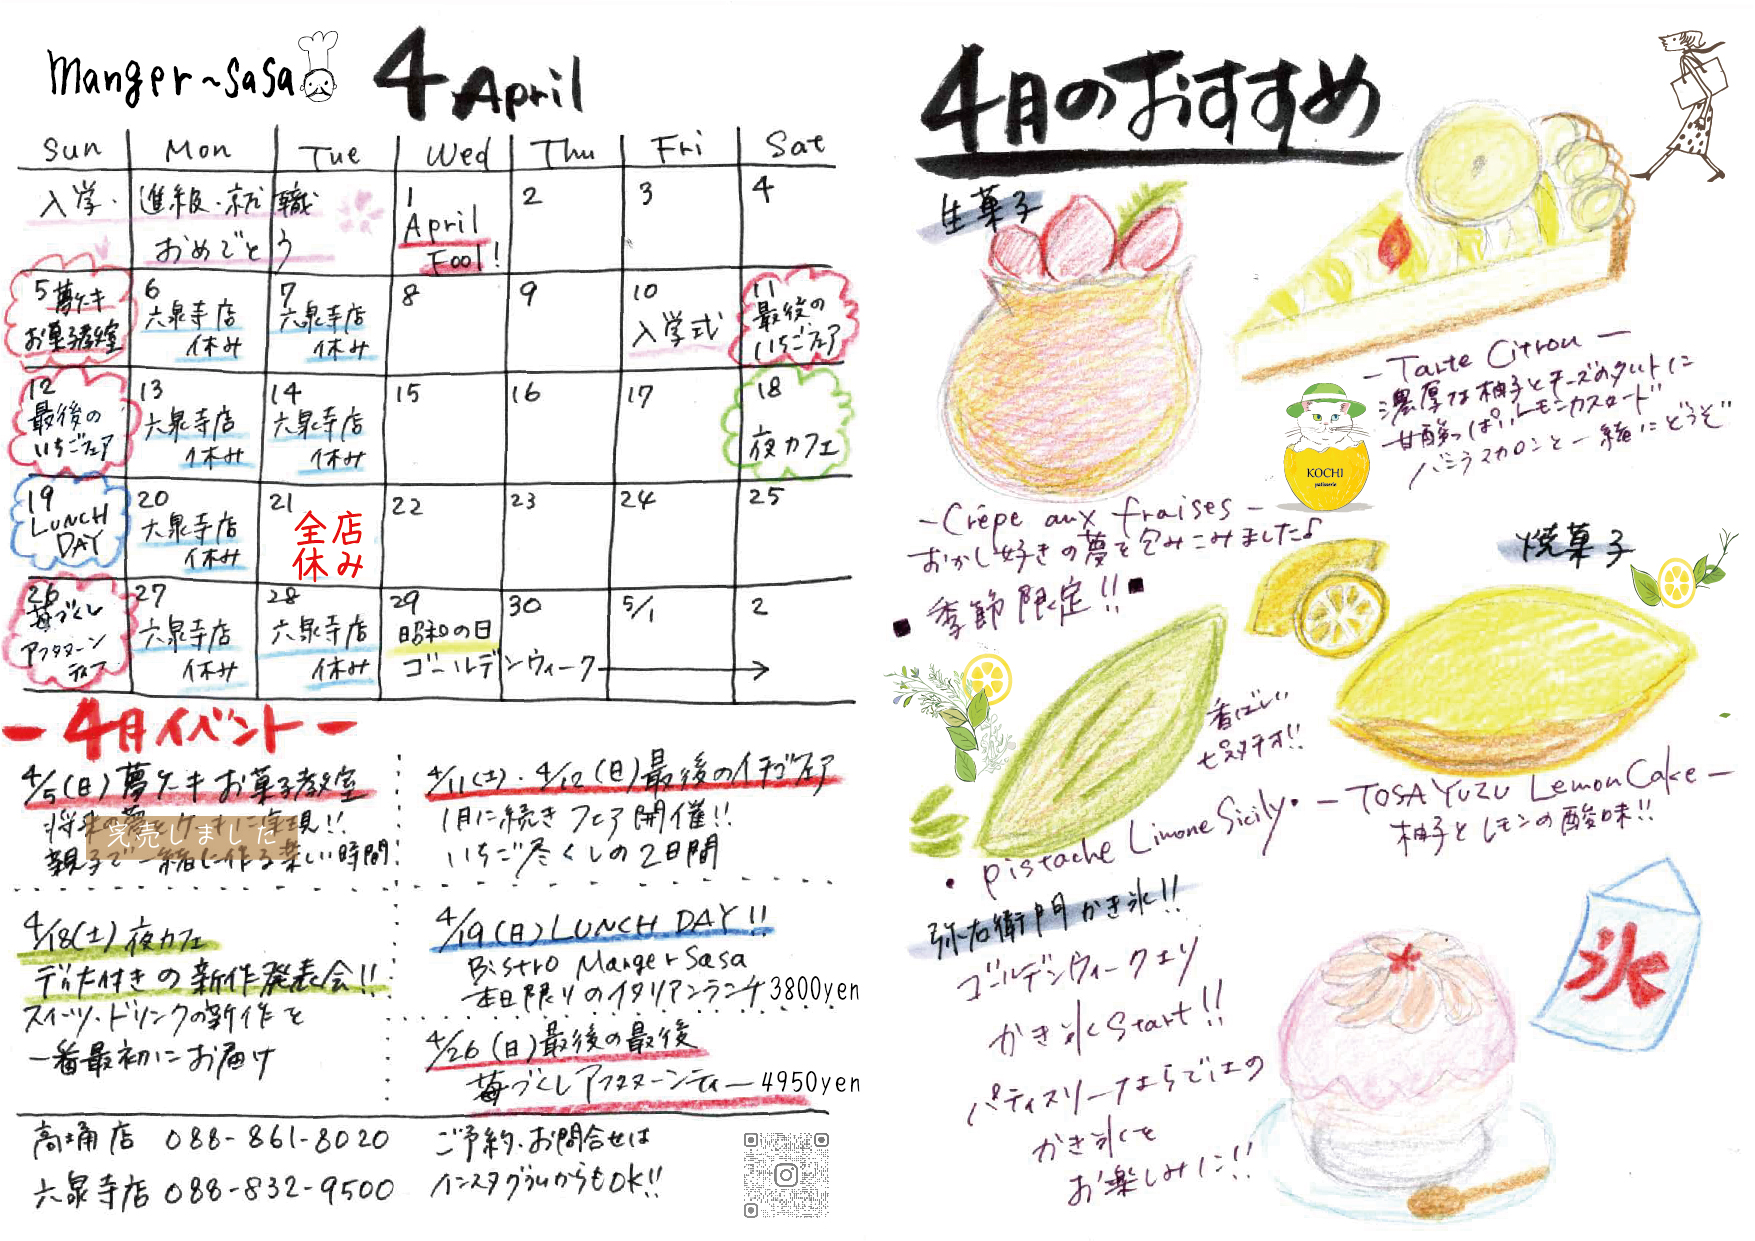 manger~sasa
4 April
Sun Mon Tue Wed Thu Fri Sat
入学・進級・就職
おめでとう
1 April Fool!
2
3
4
5 夢ケーキ お菓子教室
6 六泉寺店 休み
7 六泉寺店 休み
8
9
10 入学式
11 最後の いちごフェア
12 最後の いちごフェア
13 六泉寺店 休み
14 六泉寺店 休み
15
16
17
18 夜カフェ
19 LUNCH DAY
20 六泉寺店 休み
21 全店 休み
22
23
24
25
26 苺づくし アフタヌーンティー
27 六泉寺店 休み
28 六泉寺店 休み
29 昭和の日
30
5/1
2
ゴールデンウィーク
-4月イベント-
4/5(日)夢ケーキお菓子教室
将来の夢をケーキに実現!!
完売しました
親子で一緒に作る楽しい時間
4/11(土)・4/12(日)最後のイチゴフェア
1月に続きフェア開催!!
いちご尽くしの2日間
4/18(土)夜カフェ
デザート付きの新作発表会!!
スイーツ・ドリンクの新作を
一番最初にお届け
4/19(日)LUNCH DAY!!
Bistro Manger Sasa
本日限りのイタリアンランチ3800yen
4/26(日)最後の最後
苺づくしアフタヌーンティー4950yen
高埇店 088-861-8020
六泉寺店 088-832-9500
ご予約・お問合せは
インスタグラムからもOK!!
4月のおすすめ
生菓子
-Crêpe aux fraises-
おかし好きの夢を包みこみました♪
■季節限定!!■
-Tarte Citron-
濃厚な柚子とチーズのタルトに
甘酸っぱいレモンカスタード
バニラマカロンと一緒にどうぞ
KOCHI
patisserie
焼菓子
香ばしい
ピスタチオ!!
・pistache Limone Sicily・
-TOSA YUZU Lemon Cake-
柚子とレモンの酸味!!
弥右衛門かき氷!!
ゴールデンウィークより
かき氷Start!!
パティスリーならではの
かき氷を
お楽しみに!!
氷